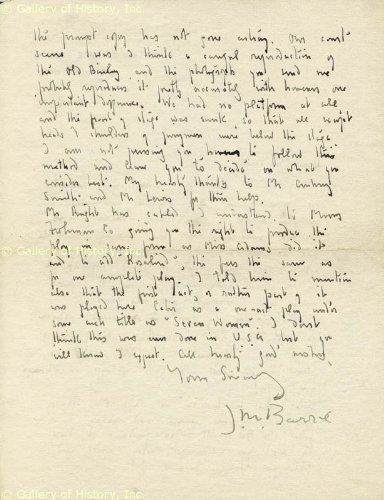 © Gallery of History, Inc.
the prompt copy has not gone astray. Our court
scene I was I think a careful reproduction of
the Old Bailey and the photograph you send me
probably reproduces it pretty accurately with however one
important difference. We had no platform at all
and the front of stage was sunk so that all except
heads & shoulders of jurymen were below the stage.
I am not pressing you to follow this
method and leave you to decide on what you
consider best. My hearty thanks to Mr
Smith and Mr for their help.
Mr has cabled I understand to Messrs
Frohman to giving you the right to produce the
play in same form as Miss Adams did it
and to add "Rosalind", this just the same as
for one complete play. I told him to mention
also that the first act, or rather part of it
was played here later as a one-act play under
some such title as "Seven Women". I don't
think this was ever done in U.S.A but you
will know I expect. All hearty good wishes,
© Gallery of History, Inc.
Yours Sincerely
J.M. Barrie
© Gallery of History, Inc.